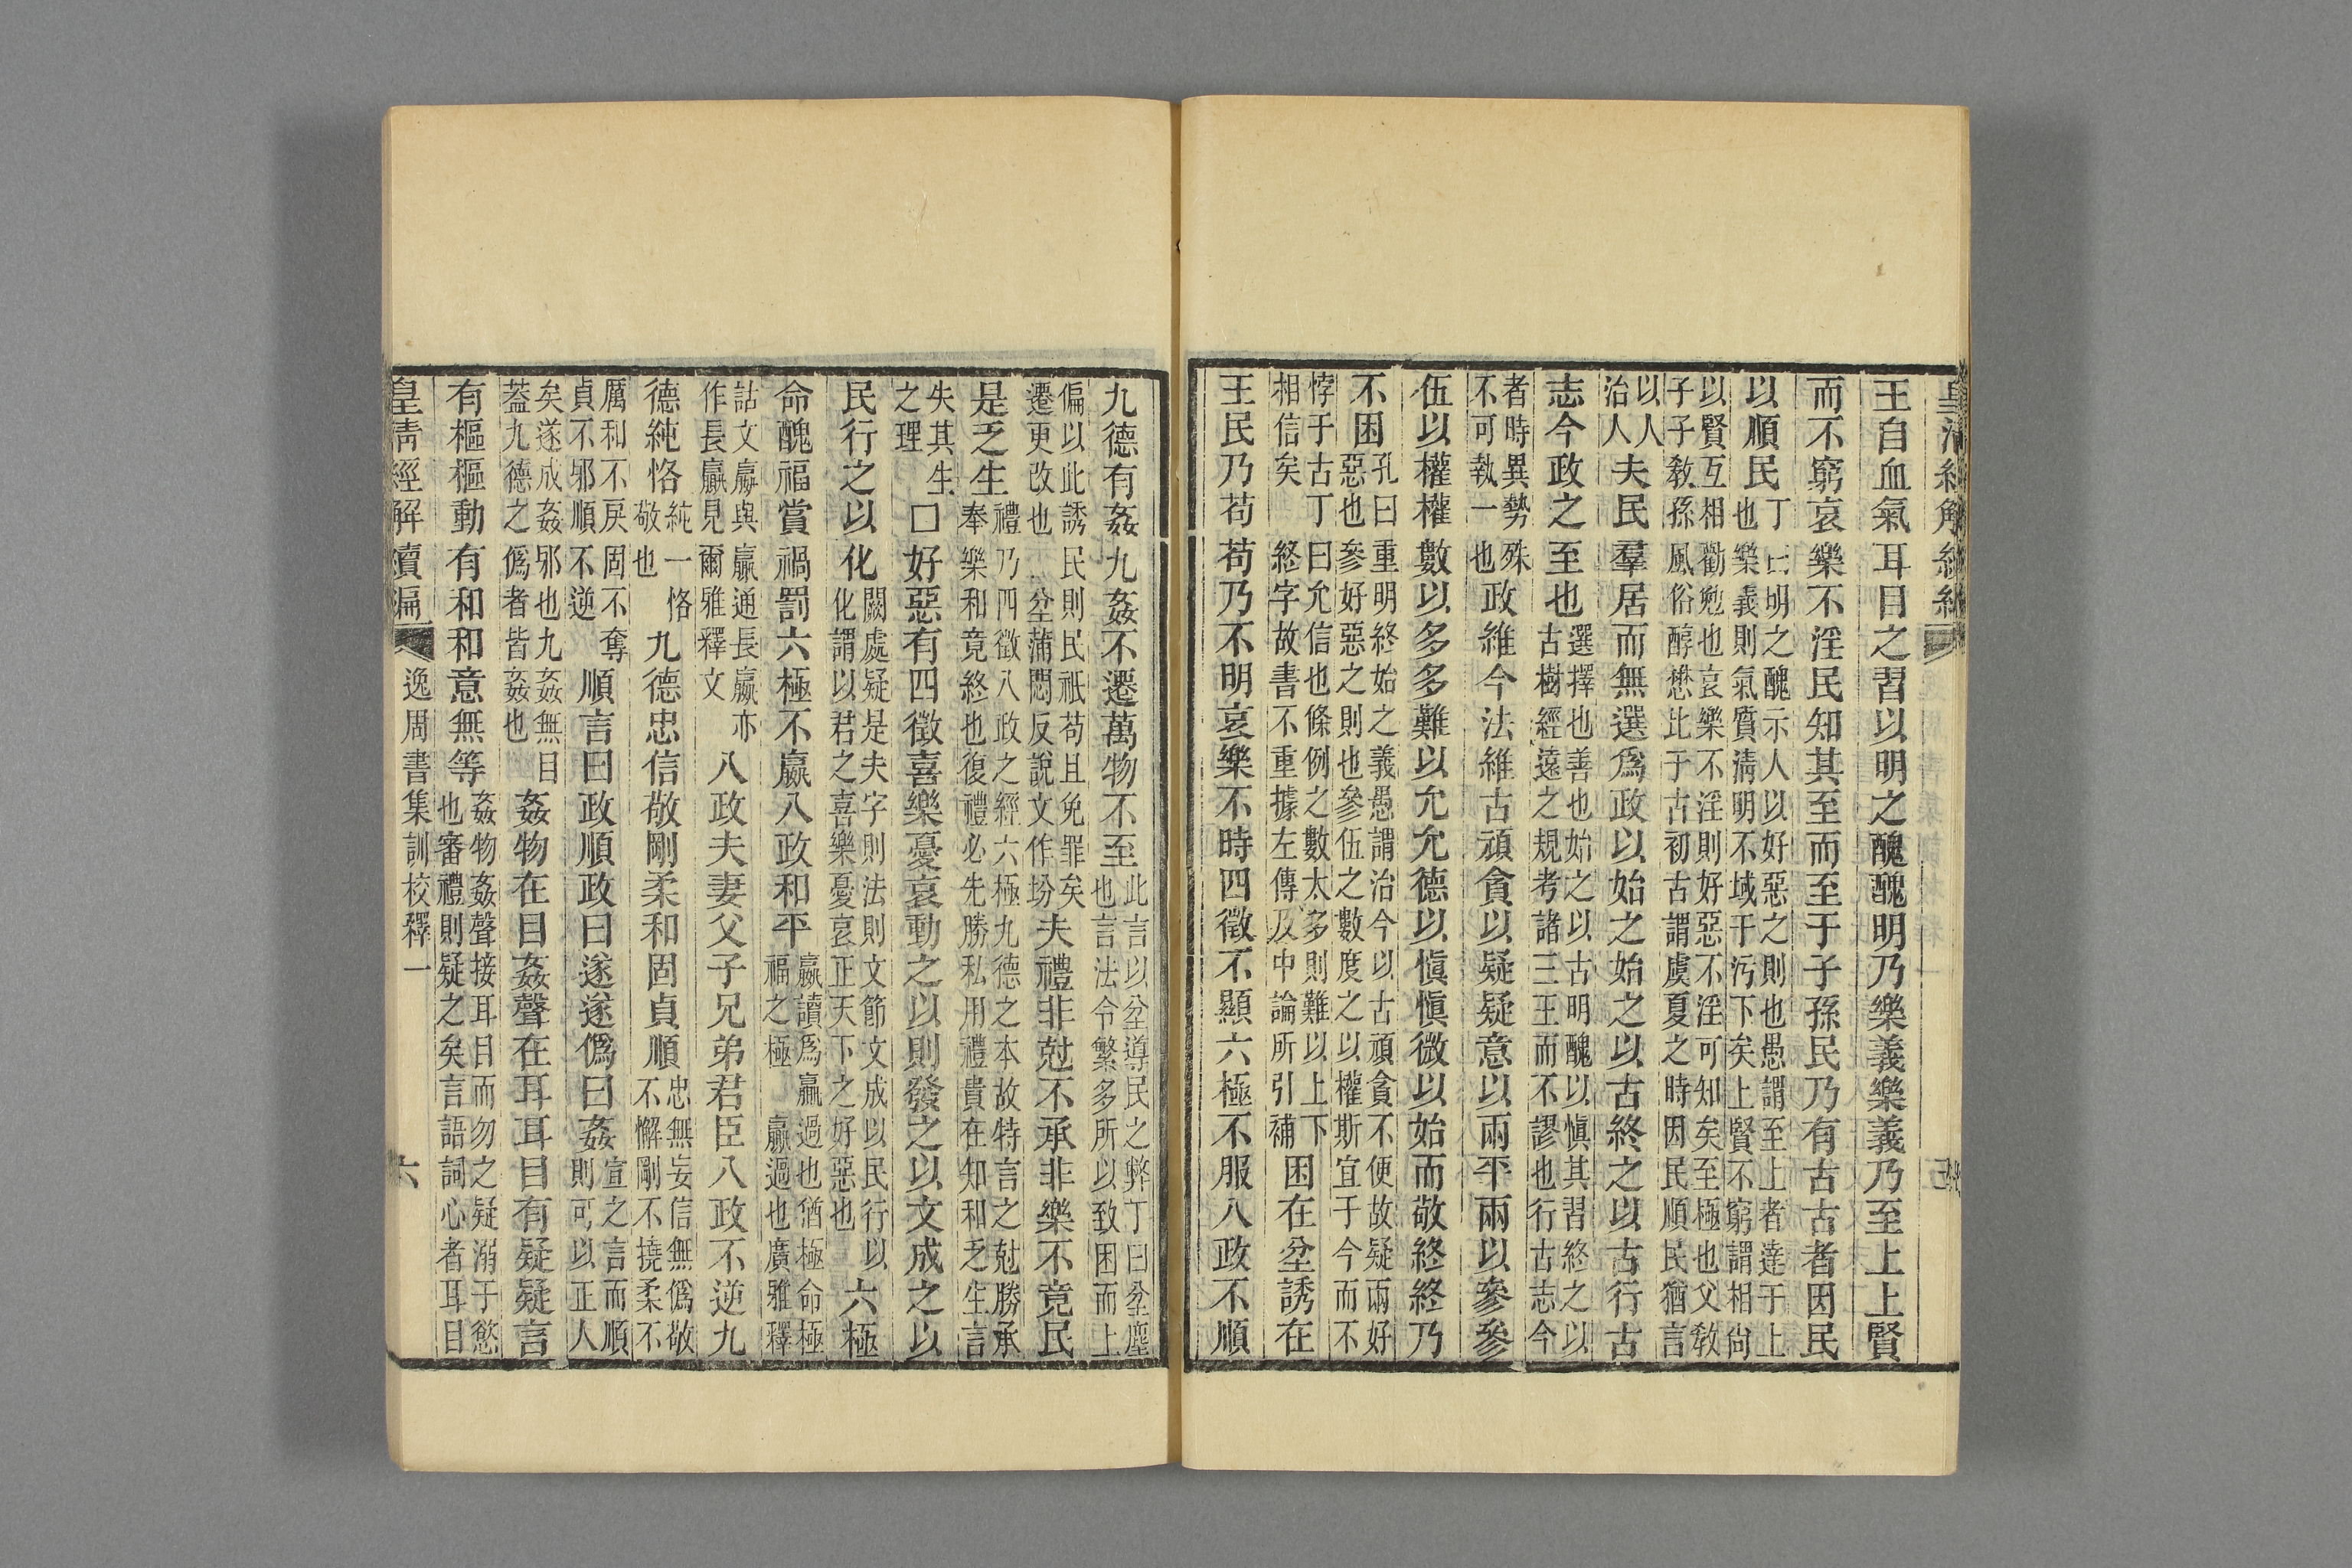 王自血氣耳目之習以明之醜醜明乃樂義樂義乃至上上賢
而不窮哀樂不淫民知其至而至于子孫民乃有古古者因民
以順民
丁曰明之醜示人以好惡之則也愚謂至上者達于上
也樂義則氣質清明不域于污下矣上賢不窮謂相尙
以賢互相勸勉也哀樂不淫則好惡不淫可知矣至極也父敎
子子敎孫風俗醇懋比于古初古謂虞夏之時因民順民猶言
以人
治人
夫民羣居而無選爲政以始之始之以古終之以古行古
志今政之至也
選擇也善也始之以古明醜以愼其習終之以
古樹經遠之規考諸三王而不謬也行古志今
者時異勢殊
不可執一也
政維今法維古頑貪以疑疑意以兩平兩以參參
伍以權權數以多多難以允允德以愼愼微以始而敬終終乃
不困
孔曰重明終始之義愚謂治今以古頑貪不便故疑兩好
惡也參好惡之則也參伍之數度之以權斯宜于今而不
悖于古丁曰允信也條例之數太多則難以上下
相信矣終字故書不重據左傳及中論所引補
困在坌誘在
王民乃苟苟乃不明哀樂不時四徵不顯六極不服八政不順
九德有姦九姦不遷萬物不至
此言以坌導民之弊丁曰坌塵
也言法令繁多所以致困而上
偏以此誘民則民祇苟且免罪矣
遷更改也坌蒲悶反說文作坋
夫禮非尅不承非樂不竟民
是乏生
禮乃四徵八政之經六極九德之本故特言之尅勝承
奉樂和竟終也復禮必先勝私用禮貴在知和乏生言
失其生
之理
□好惡有四徵喜樂憂哀動之以則發之以文成之以
民行之以化
闕處疑是夫字則法則文節文成以民行以
化謂以君之喜樂憂哀正天下之好惡也
六極
命醜福賞禍罰六極不嬴八政和平
嬴讀爲贏過也猶極命極
福之極贏過也廣雅釋
詁文嬴與贏通長嬴亦
作長贏見爾雅釋文
八政夫妻父子兄弟君臣八政不逆九
德純恪
純一恪
敬也
九德忠信敬剛柔和固貞順
忠無妄信無僞敬
不懈剛不撓柔不
厲和不戾固不奪
貞不邪順不逆
順言曰政順政曰遂遂僞曰姦
宣之言而順
則可以正人
矣遂成姦邪也九姦無目
葢九德之僞者皆姦也
姦物在目姦聲在耳耳目有疑疑言
有樞樞動有和和意無等
姦物姦聲接耳目而勿之疑溺于慾
也審禮則疑之矣言語詞心者耳目
皇清經解續編 逸周書集訓校釋一 六